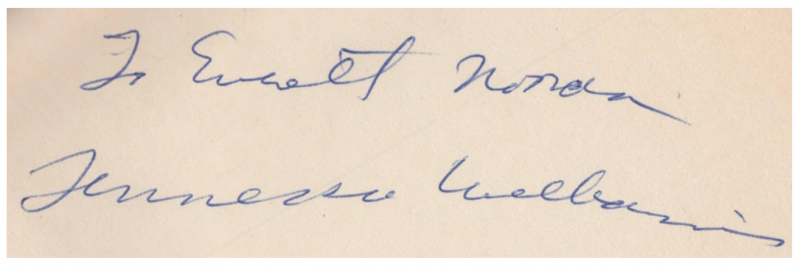 To Everett
Tennessee Williams